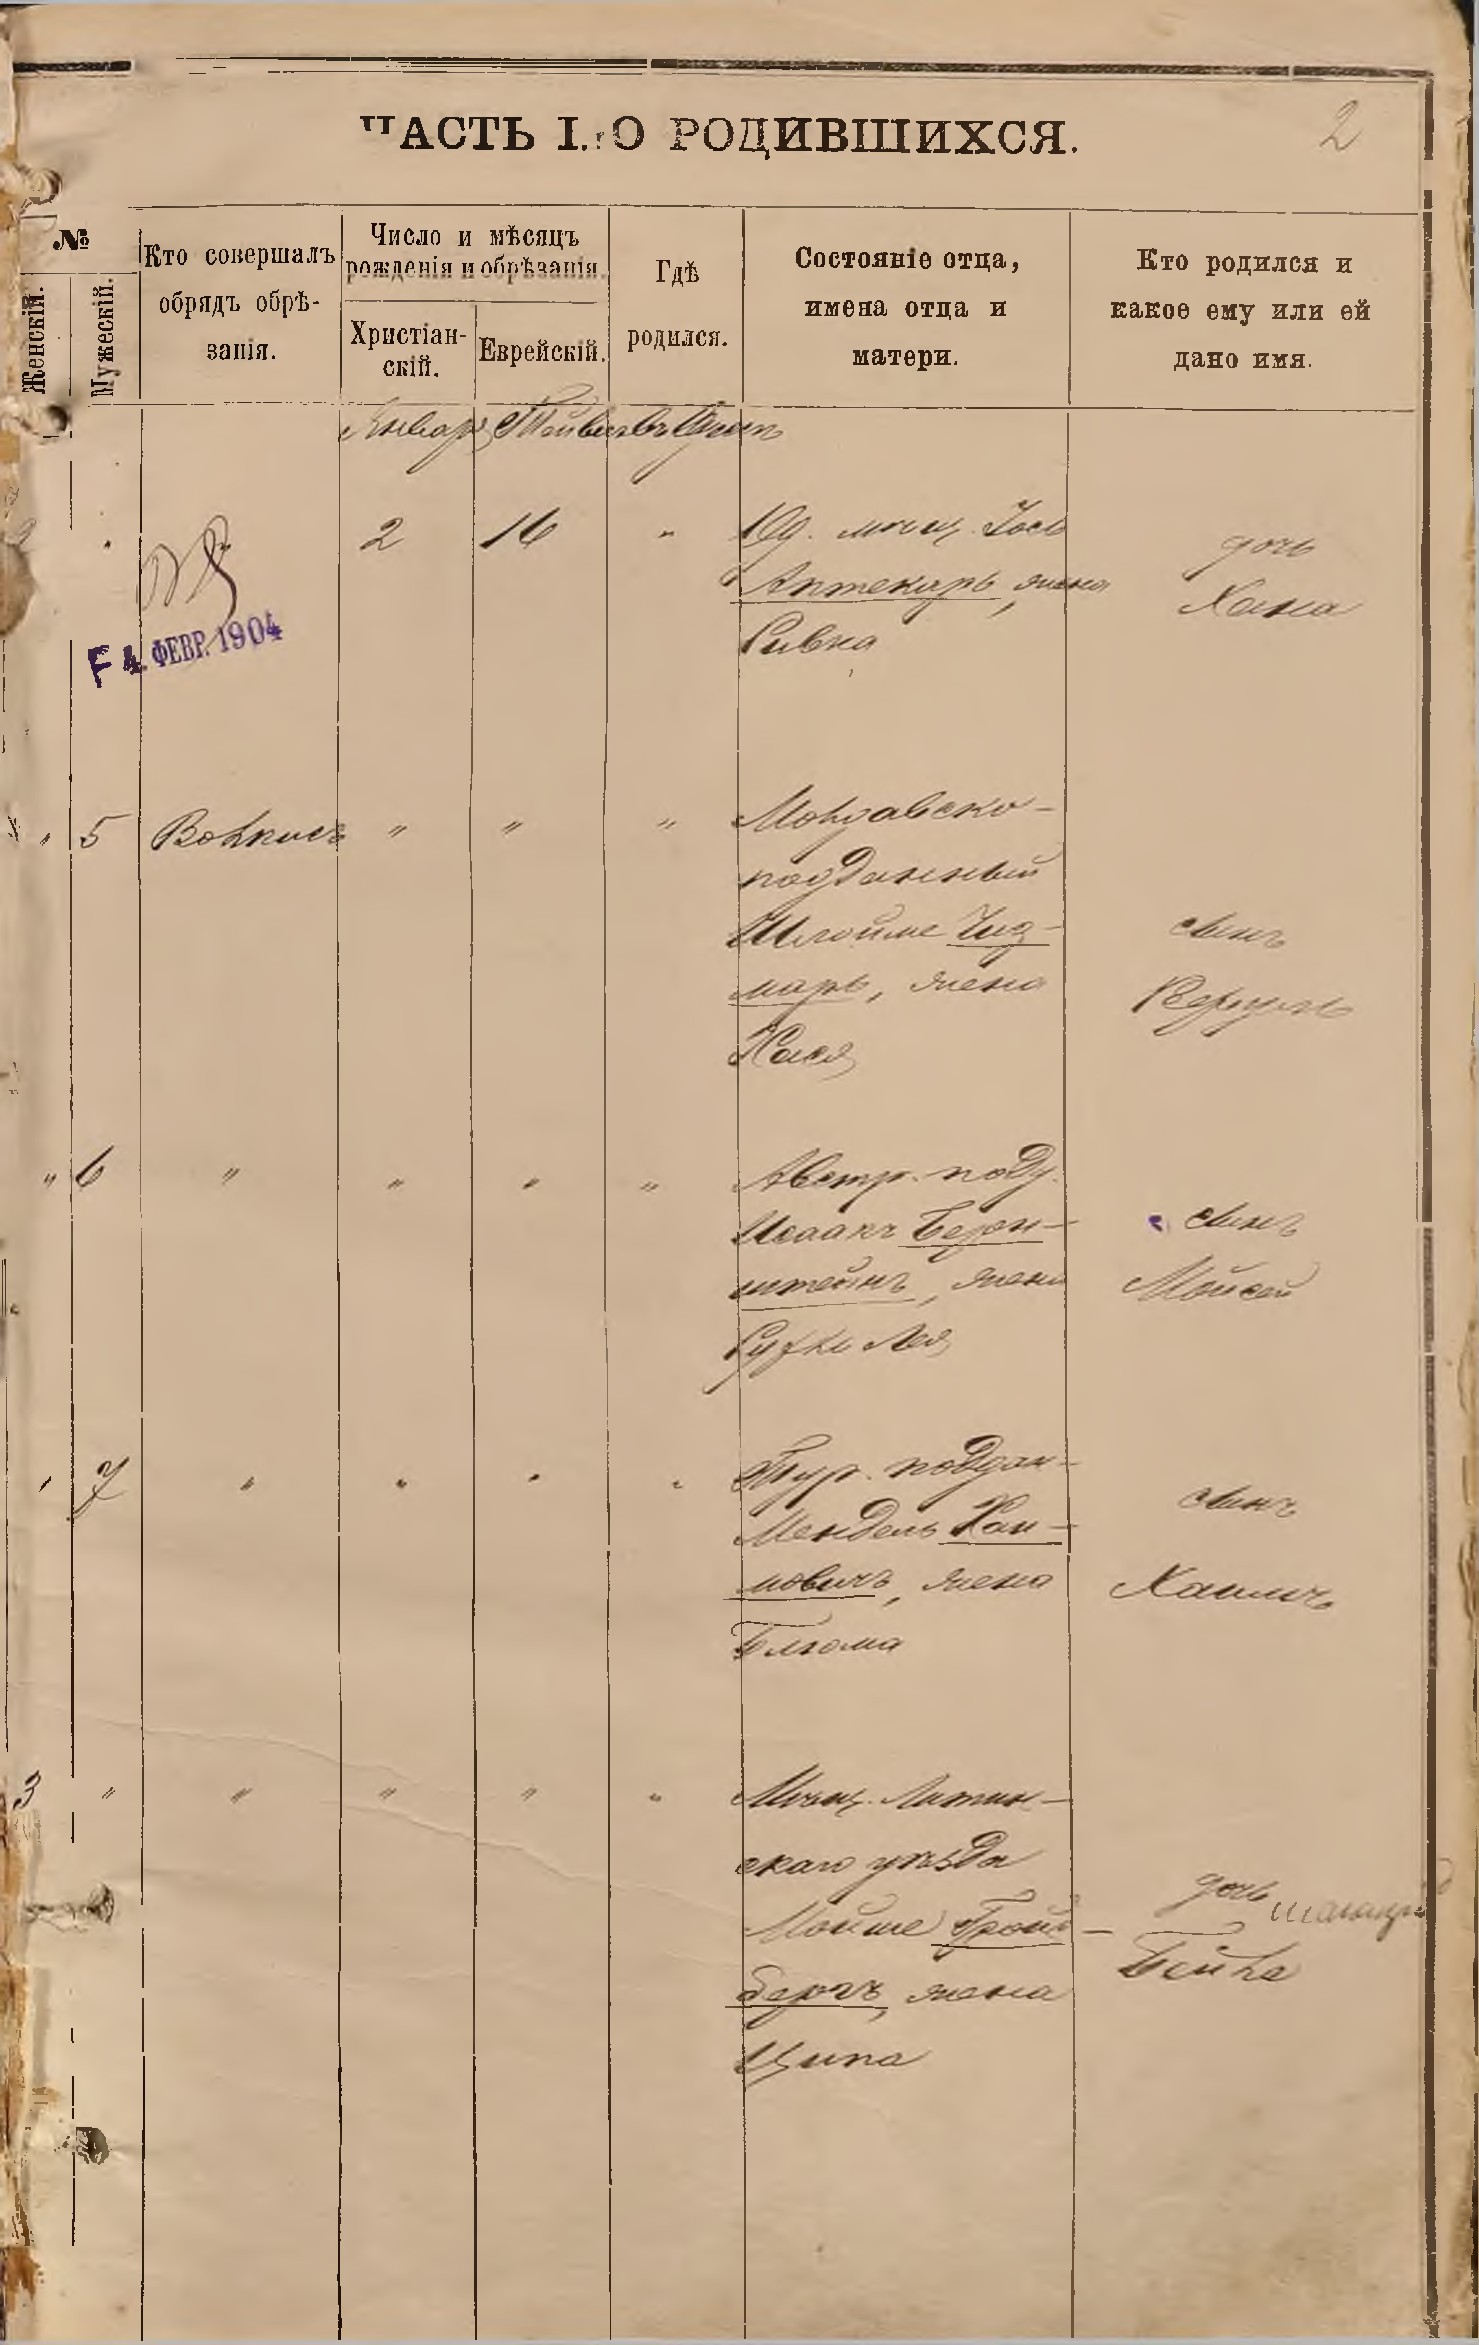 ЧАСТЬ I. О РОДИВШИХСЯ.
2
№
Женскій.
Мужескій.
Кто совершалъ
обрядъ обрѣ-
занія.
Число и мѣсяцъ
рожденія и обрѣзанія.
Христіан-
скій.
Еврейскій.
Гдѣ
родился.
Состояніе отца,
имена отца и
матери.
Кто родился и
какое ему или ей
дано имя.
Январь
2 16 " Од. мѣщ. Іось
Аптекарь, жена
Ривка
дочь
Хана
4. ФЕВР. 1904
" 5 " " "
подданный
Шлойме Чиз-
марь, жена
Хася
сынъ
" 6 " " " " Австр. подд.
Исаакъ Берн-
штейнъ, жена
Лея
сынъ
Мойсей
" 7 " " " " Тур. поддан-
Мендель Хаи-
мовичъ, жена
Блюма
сынъ
Хаимъ
3 " " " " " Мѣщ. Литин-
скаго уѣзда
Мойше Гройс-
бергъ, жена
Ципа
дочь
Бейла